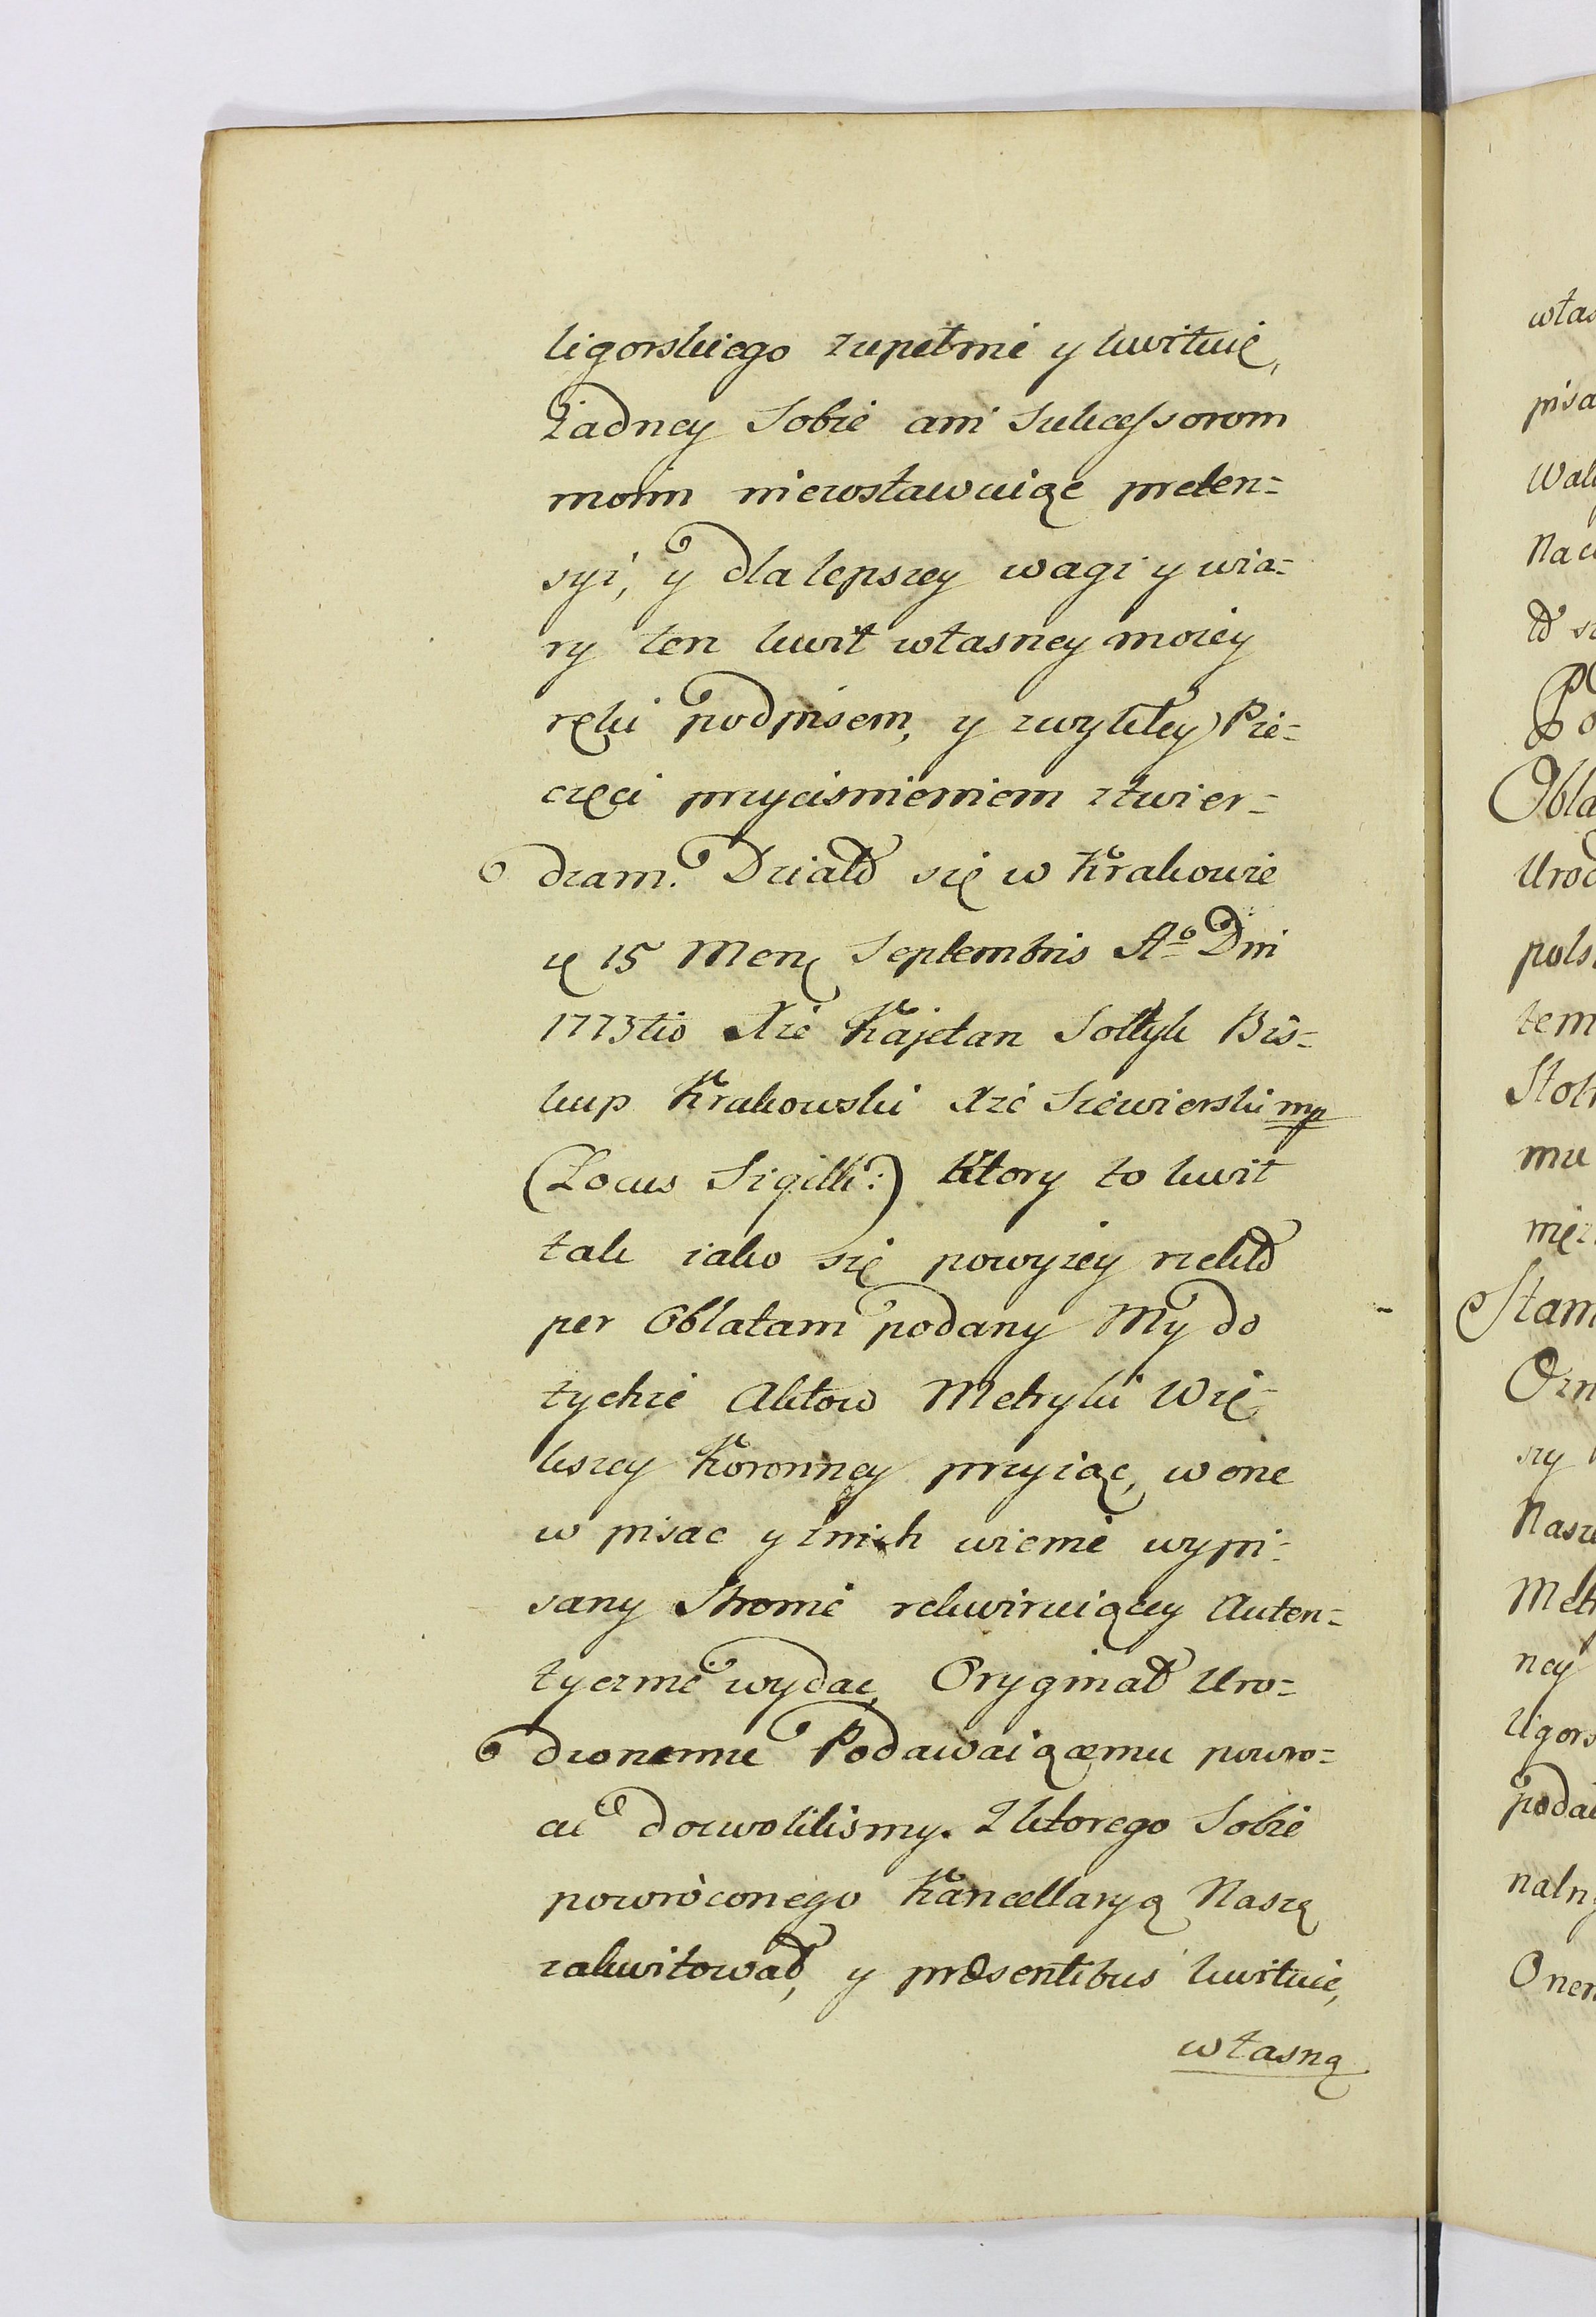 ligorskiego zupełnie y kwituię,
żadney Sobie ani Sukcessorom
moim niezostawuiąc preten=
syi, y dla lepszey wagi y wia=
ry ten kwit własney moiey
ręki podpisem, y zwykłey Pie=
częci przyciśnieniem ztwier=
dzam. Działo się w Krakowie
d 15 Mens Septembris Aº Dni
1773tio Xże Kajetan Sołtyk Bis=
kup Krakowski Xże Siewierski mp
(Locus Sigilli:) Ktory to kwit
tak iako się powyżey rzekło
per Oblatam podany My do
tychże Aktow Metryki Wię=
kszey Koronney przyiąc, w one
w pisac y znich wiernie wypi=
sany Stronie rekwiruiącey Auten=
tycznie wydac, Oryginał Uro=
dzonemu Podawaiącemu powro=
cic dozwoliliśmy. Z ktorego Sobie
powróconego Kancellaryą Naszą
zakwitował, y præsentibus kwituie,
własną
włas
pisa
Nac
Obla
Urod
pols
tem
mu
Stam
sży
Nasz
Metr
ney
ligors
podaw
nalny
Onem